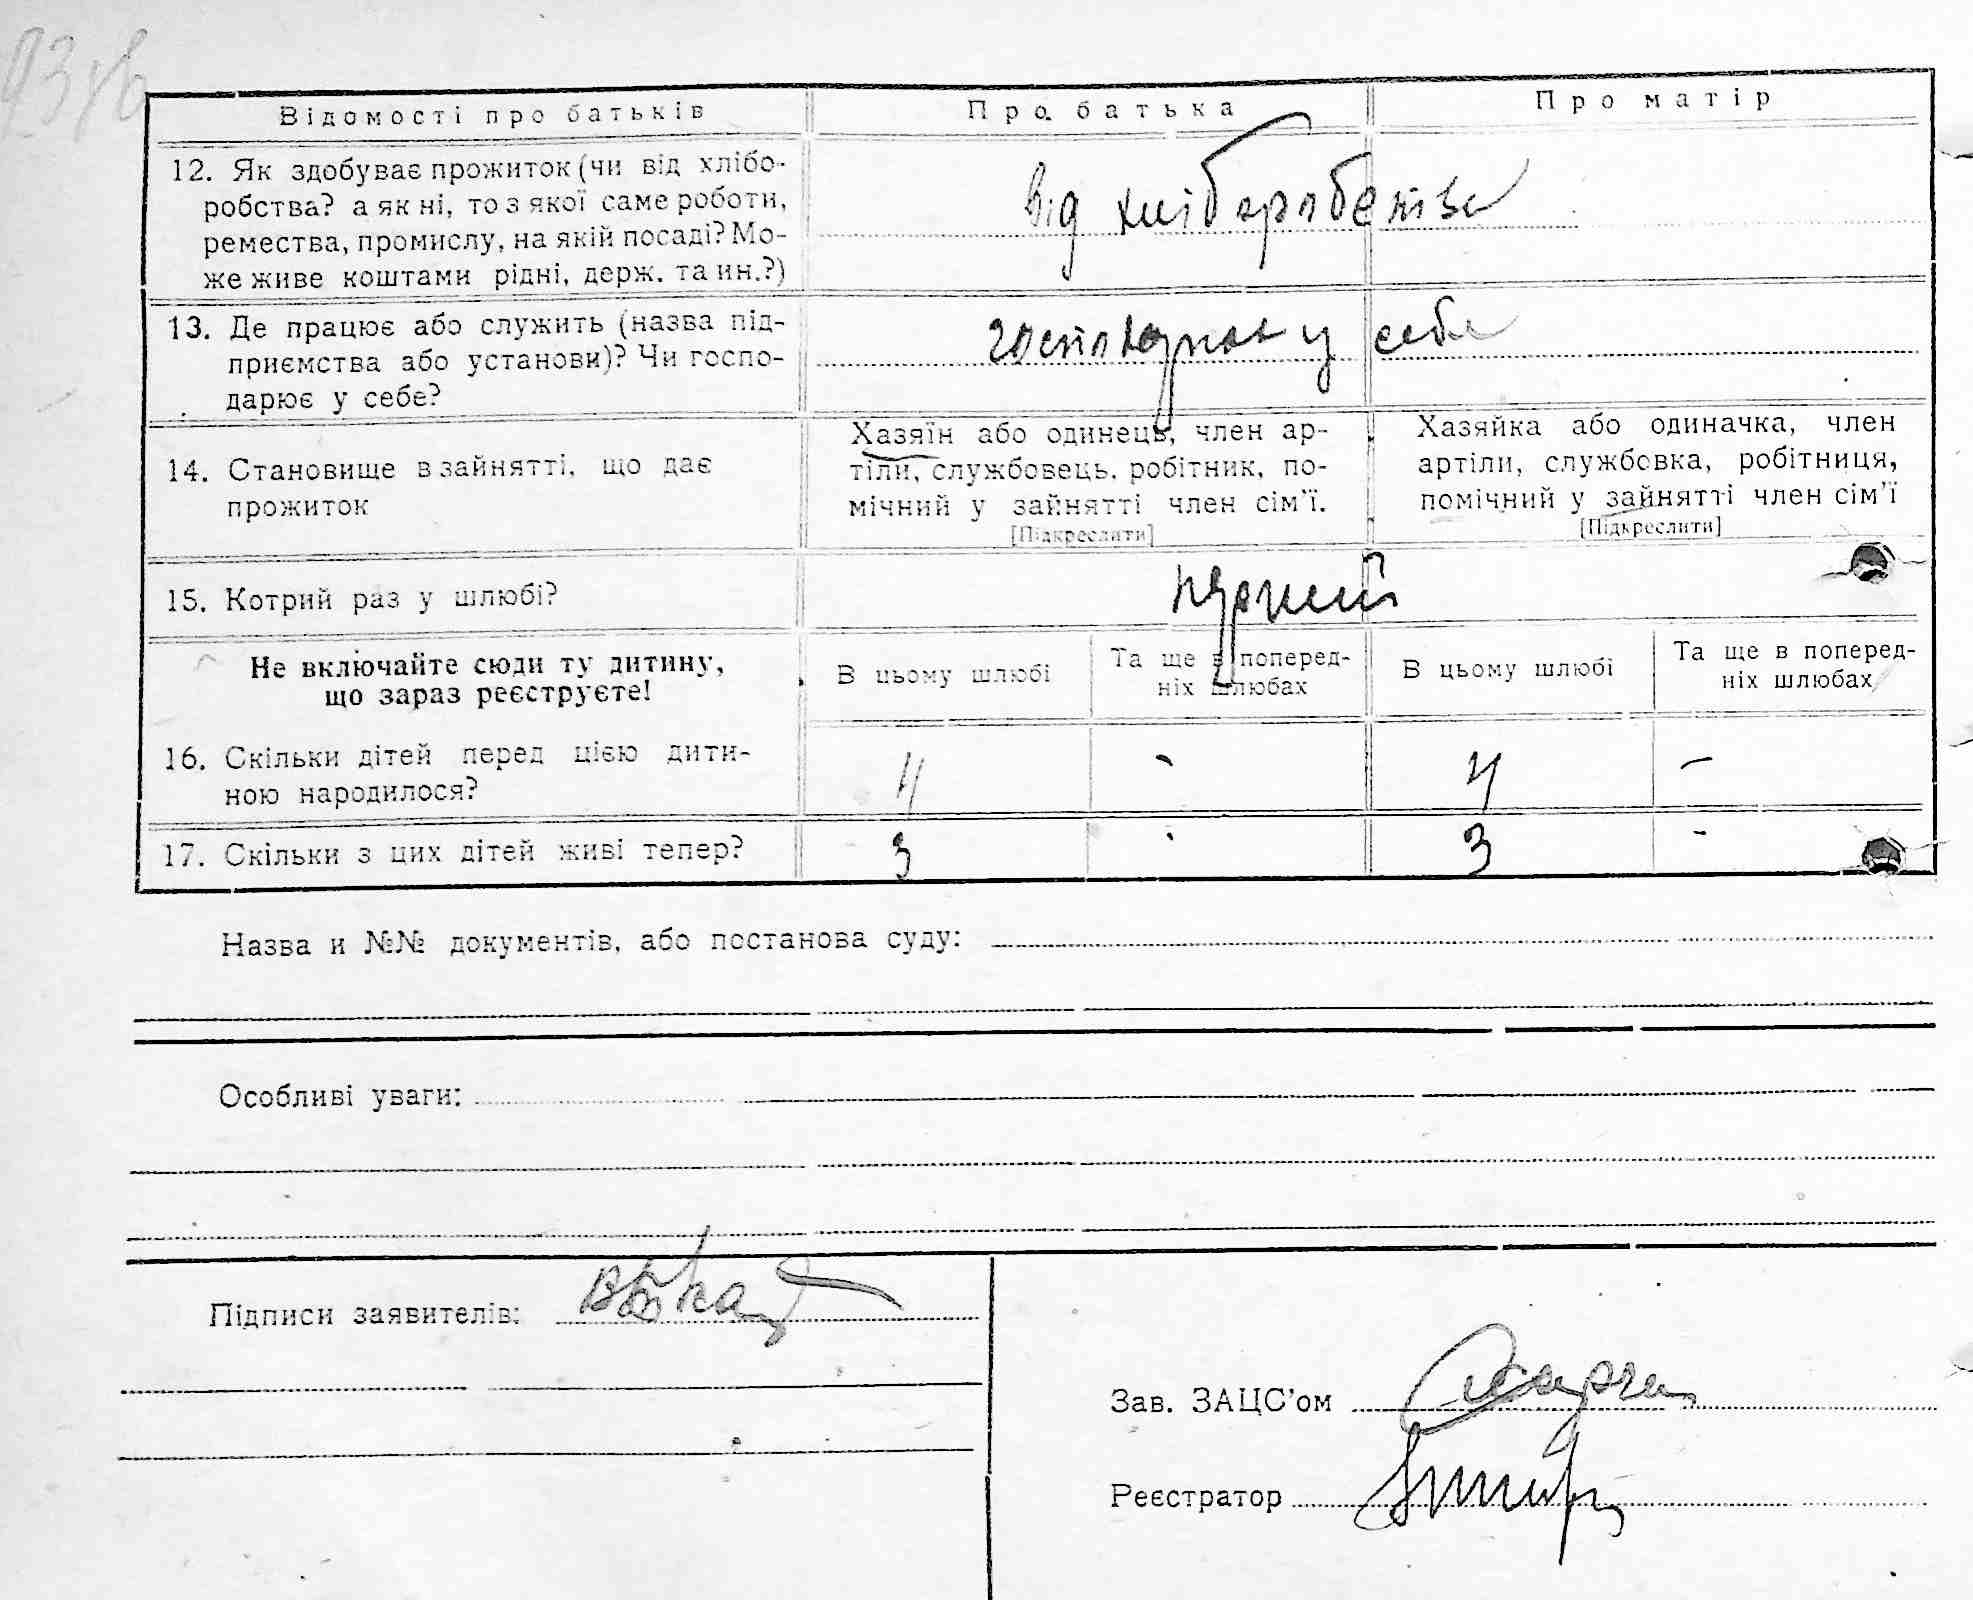 Відомості про батьків Про батька Про матір
12. Як здобуває прожиток (чи від хлібо-
робства? а як ні, то з якої саме роботи,
ремества, промислу, на якій посаді? Мо-
же живе коштами рідні, держ. та ин.?)
від хліборобства
13. Де працює або служить (назва під-
приємства або установи)? Чи госпо-
дарює у себе?
господарює у себе
14. Становище в зайнятті, що дає
прожиток
Хазяїн або одинець, член ар-
тіли, службовець, робітник, по-
мічний у зайнятті член сім'ї.
[Підкреслити]
Хазяйка або одиначка, член
артіли, службовка, робітниця,
помічний у зайнятті член сім'ї
[Підкреслити]
15. Котрий раз у шлюбі?
Не включайте сюди ту дитину,
що зараз реєструєте!
В цьому шлюбі
Та ще в поперед-
ніх шлюбах
В цьому шлюбі
Та ще в поперед-
ніх шлюбах
16. Скільки дітей перед цією дити-
ною народилося?
4 - 4 -
17. Скільки з цих дітей живі тепер?
3 - 3 -
Назва и №№ документів, або постанова суду:
Особливі уваги:
Підписи заявителів:
Зав. ЗАЦС'ом
Реєстратор